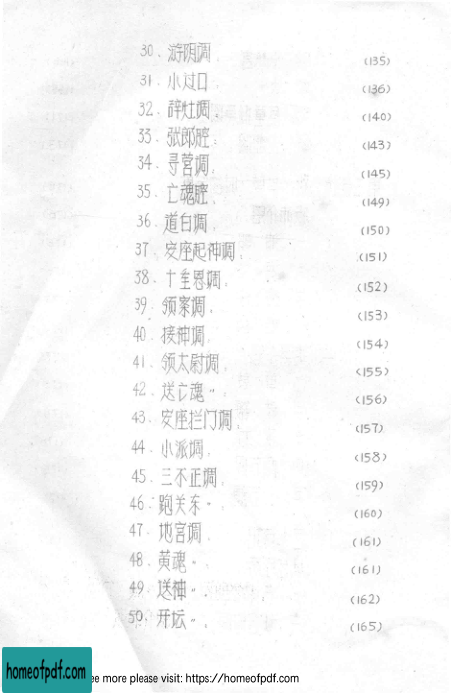 30、游阴调 (135)
31、小过口 (136)
32、辞灶调 (140)
33、张郎腔 (143)
34、寻营调 (145)
35、亡魂腔 (149)
36、道白调 (150)
37、安座起神调 (151)
38、十重恩调 (152)
39、领案调 (153)
40、接神调 (154)
41、领太尉调 (155)
42、送亡魂〃 (156)
43、安座拦门调 (157)
44、小派调 (158)
45、三不正调 (159)
46、跑关东〃 (160)
47、地宫调 (161)
48、黄魂〃 (161)
49、送神〃 (162)
50、开坛〃 (165)
homeofpdf.com
ee more please visit: https://homeofpdf.com